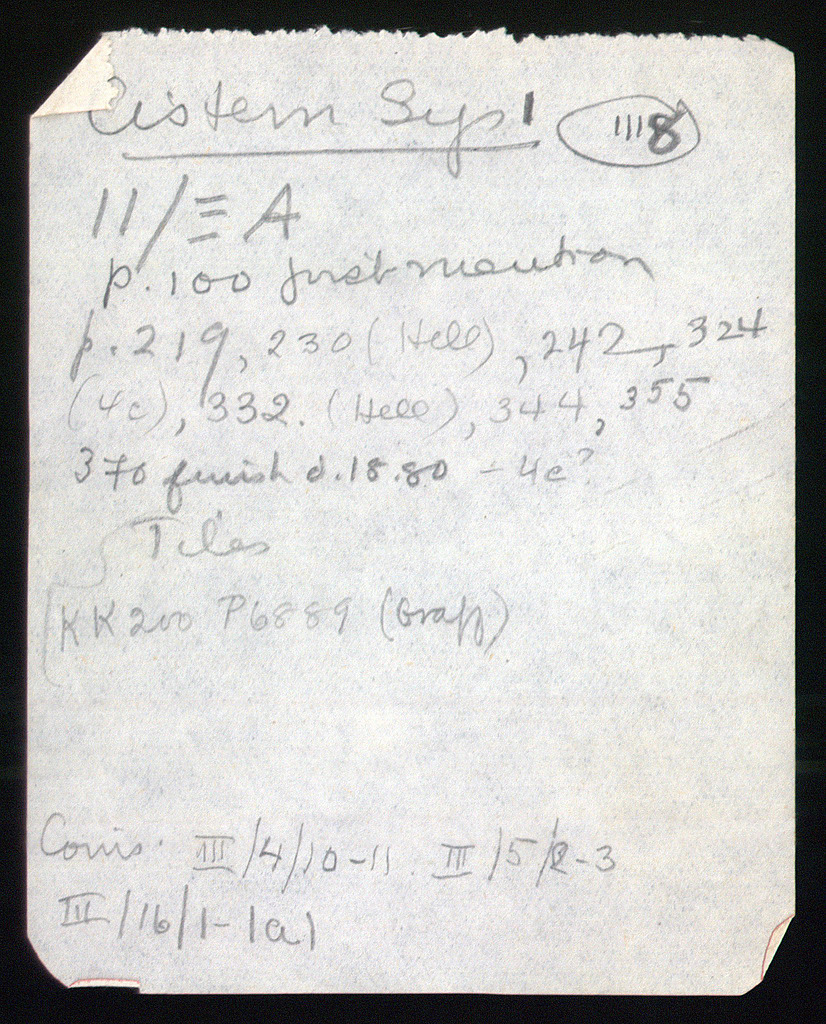 Cistern Sys 1 IIII8
11/Ξ A
p. 100 first mention
p. 219, 230 (Hell), 242, 324
(4c), 332. (Hell), 344, 355
370 finish d. 18.80 - 4c?
Tiles
KK 200 P6889 (Graff)
Coins. III/4/10-11. III/5/2-3
III/16/1-1a1